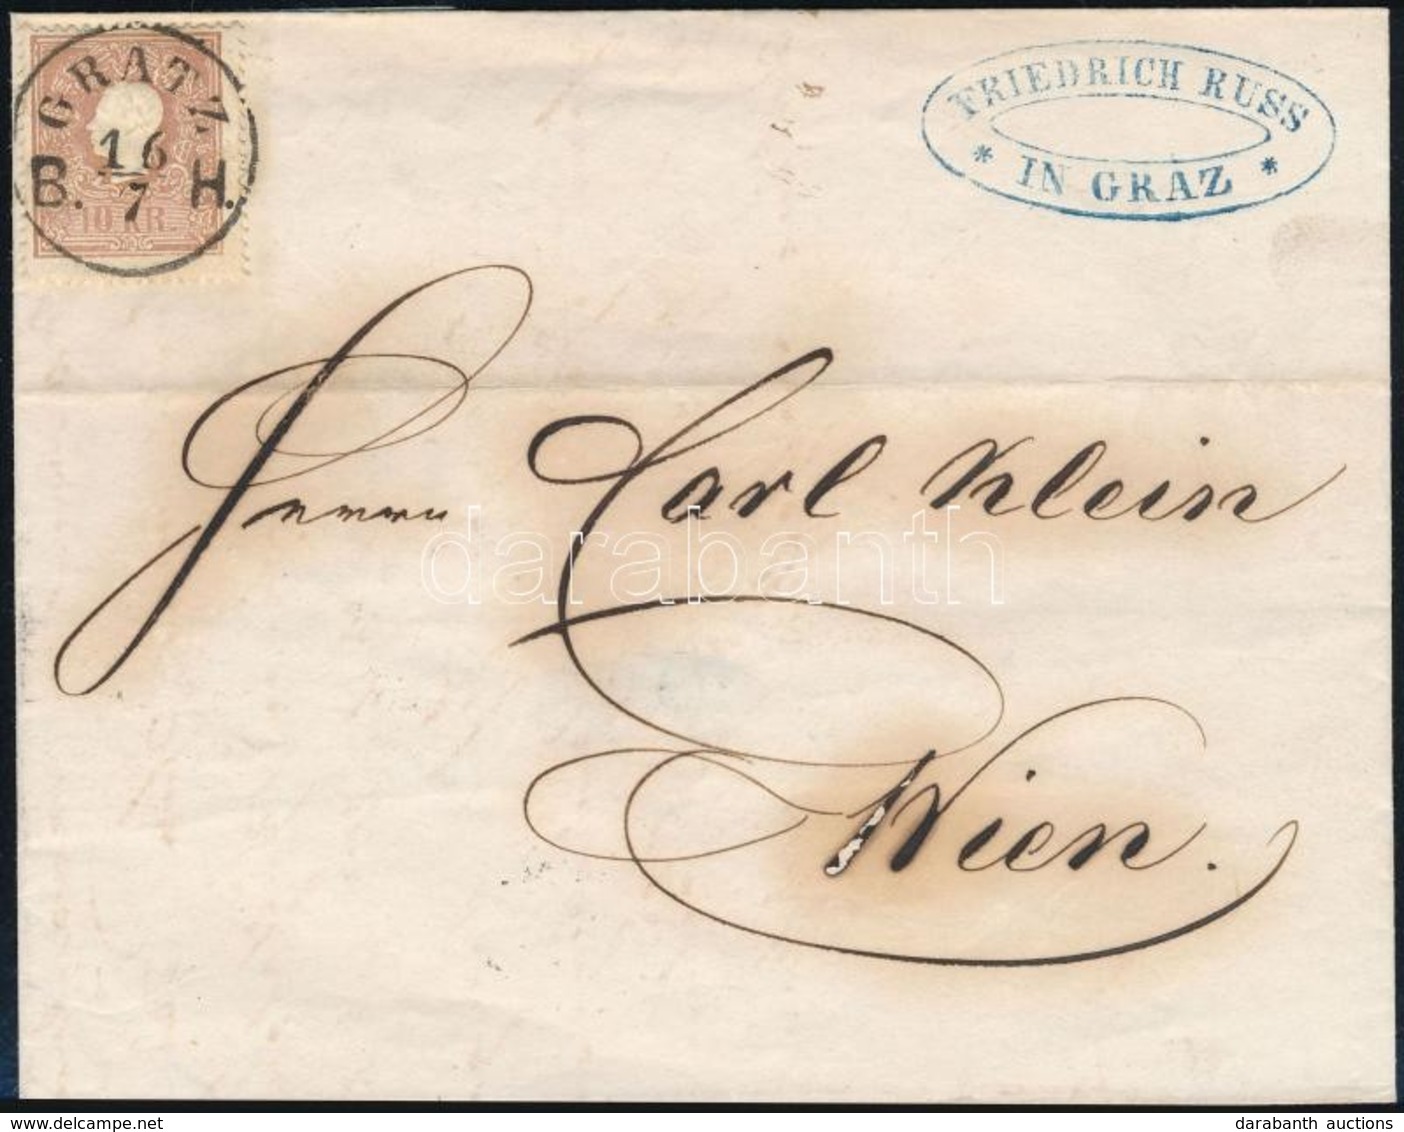 GRATZ
16
B. 7 H.
10 KR.
FRIEDRICH RUSS
* IN GRAZ *
Herrn Carl Klein
darabanth
Wien.
darabanth auctions